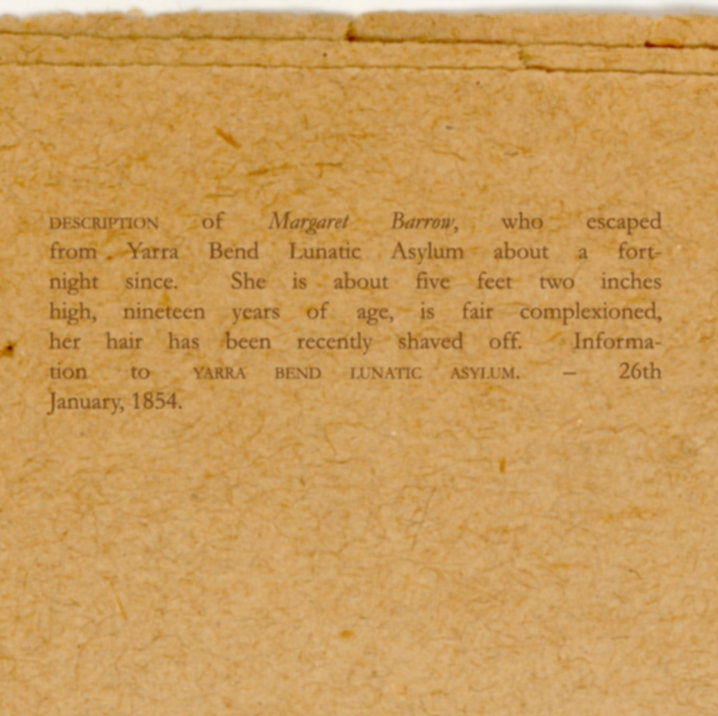 DESCRIPTION of Margaret Barrow, who escaped
from . Yarra Bend Lunatic Asylum about a fort-
night since. She is about five feet two inches
high, nineteen years of age, is fair complexioned,
her hair has been recently shaved off. Informa-
tion to YARRA BEND LUNATIC ASYLUM. – 26th
January, 1854.